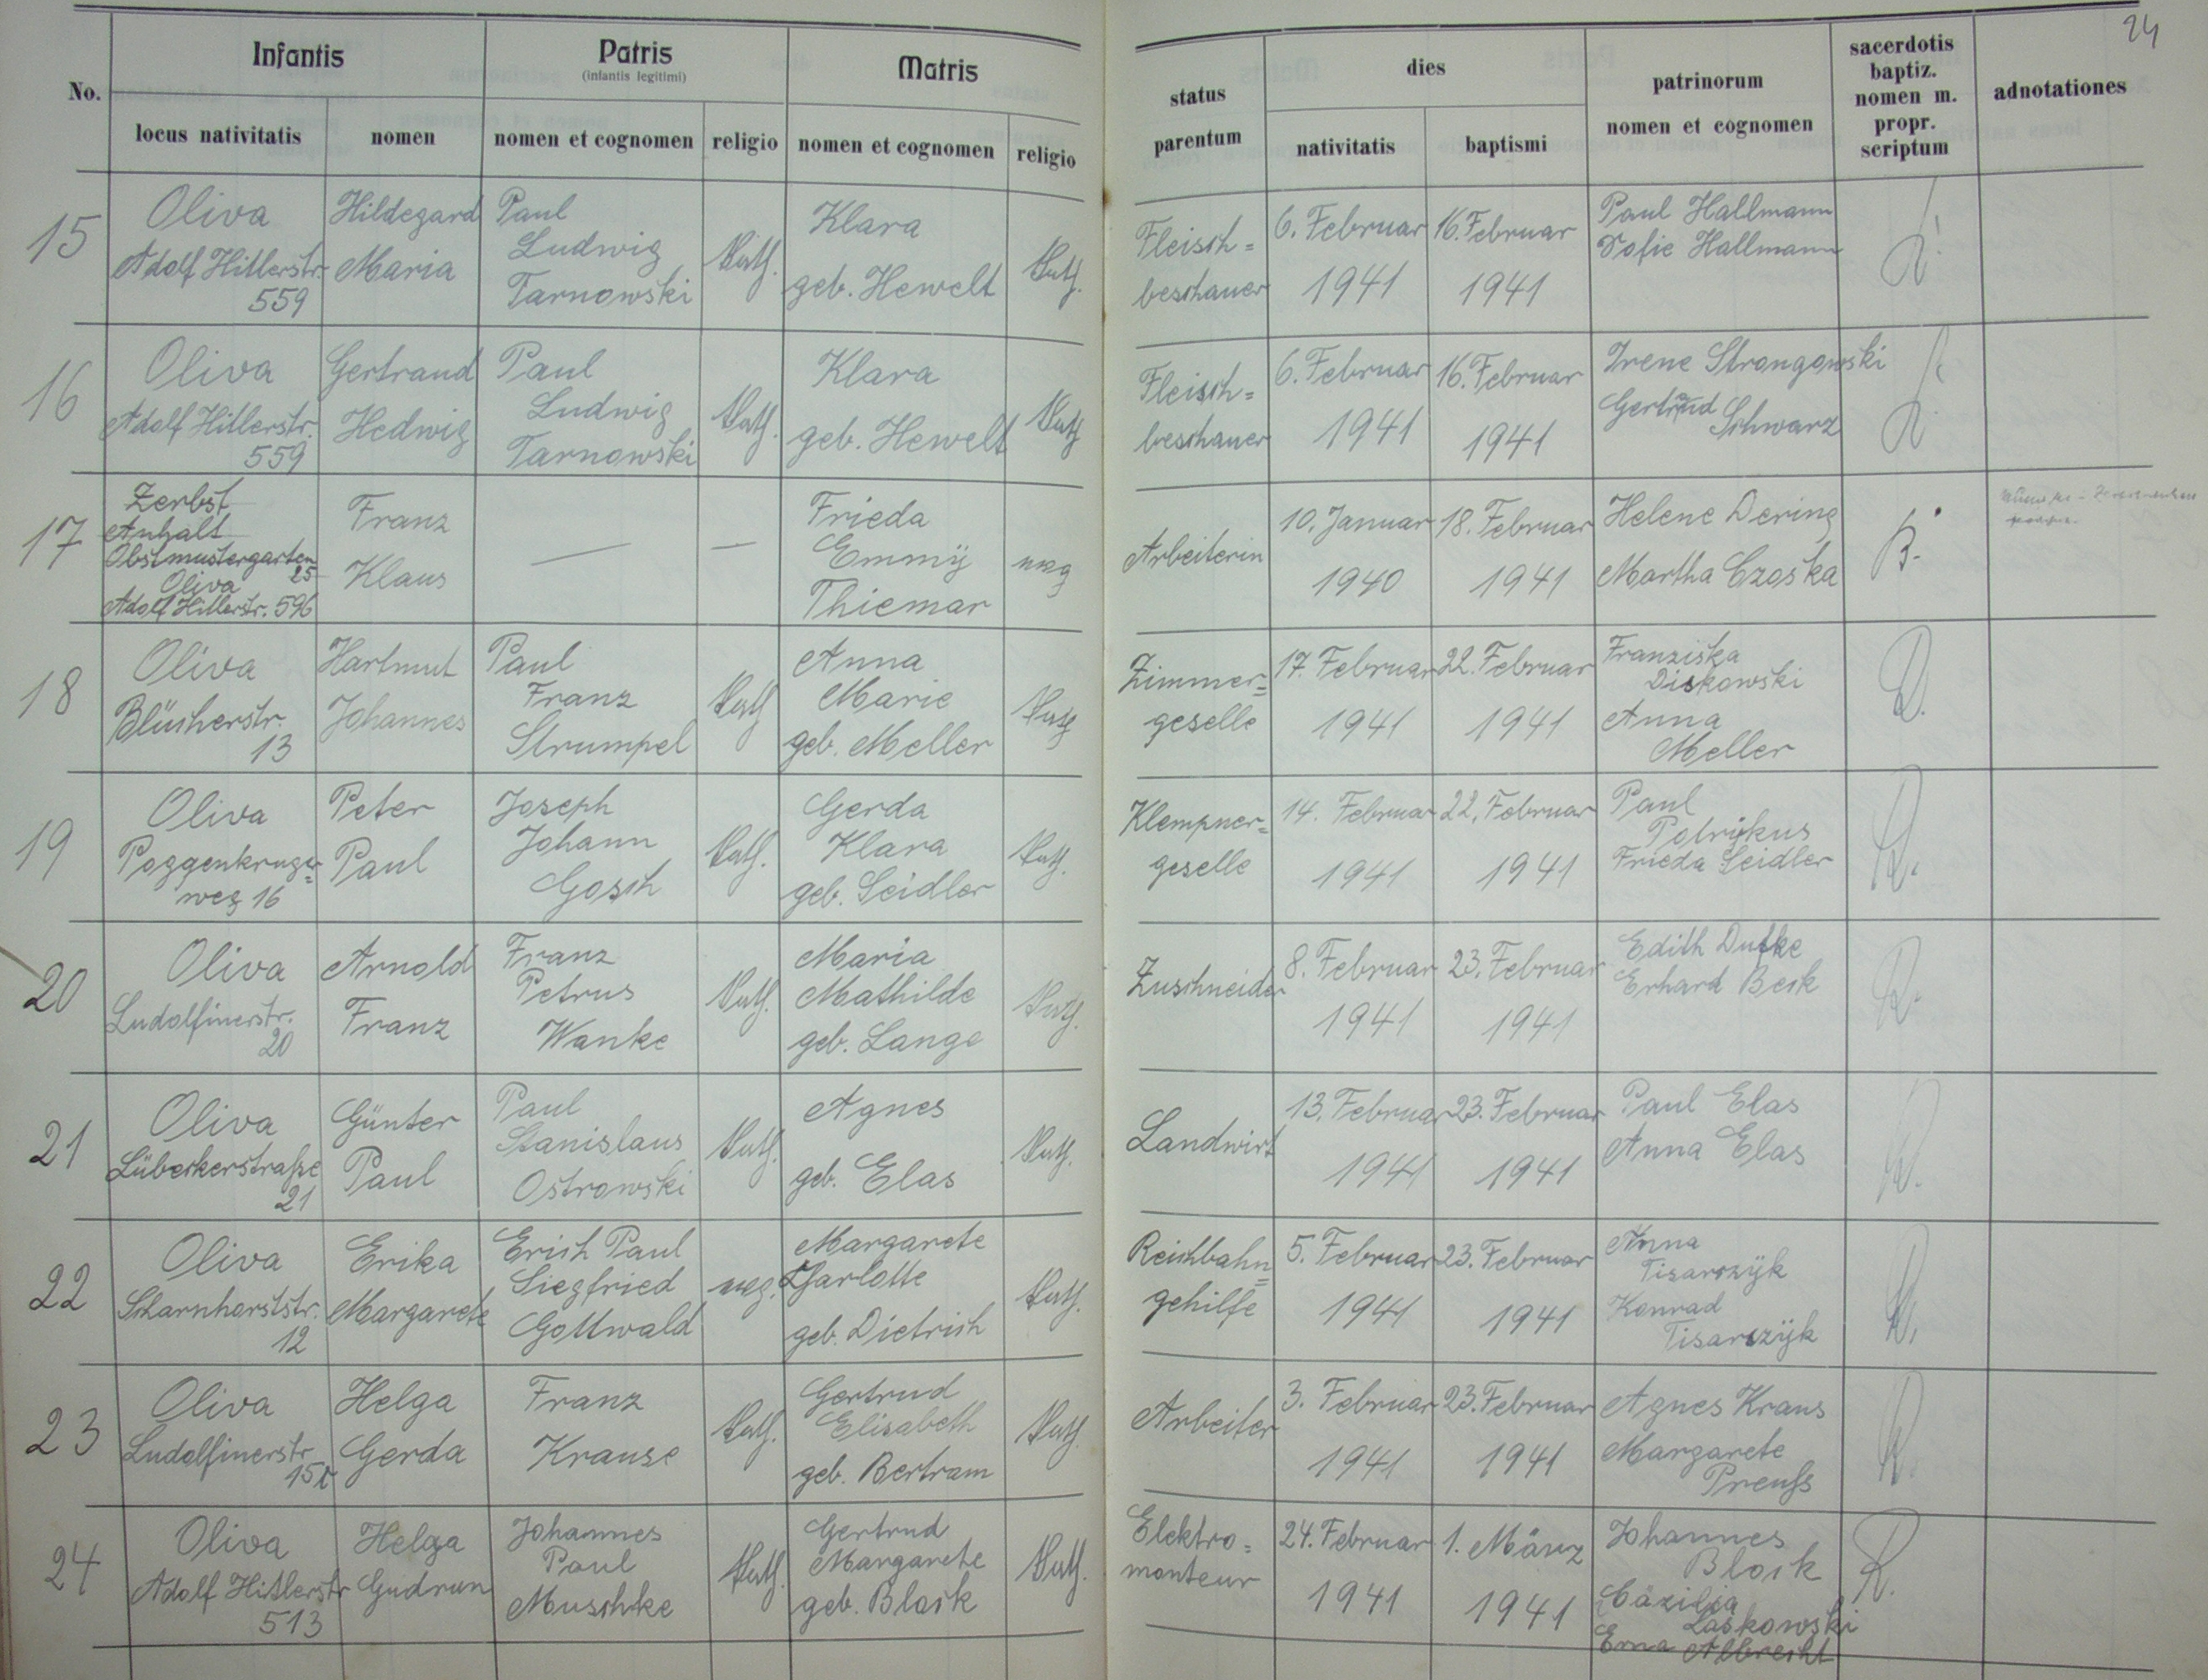 24
No.
Infantis
Patris
(infantis legitimi)
Matris
status parentum
dies
patrinorum
nomen et cognomen
sacerdotis
baptiz.
nomen m.
propr.
scriptum
adnotationes
locus nativitatis
nomen
nomen et cognomen
religio
nomen et cognomen
religio
nativitatis
baptismi
15
Oliva
Adolf Hitlerstr.
559
Hildegard
Maria
Paul
Ludwig
Tarnowski
kath.
Klara
geb. Hewelt
kath.
Fleisch=
beschauer
6. Februar
1941
16. Februar
1941
Paul Hallmann
Sofie Hallmann
16
Oliva
Adolf Hitlerstr.
559
Gertraud
Hedwig
Paul
Ludwig
Tarnowski
kath.
Klara
geb. Hewelt
kath
Fleisch=
beschauer
6. Februar
1941
16. Februar
1941
Irene Strongowski
Gertrud
Schwarz
17
Zerbst
Anhalt
Obstmustergarten
25
Oliva
Adolf Hitlerstr. 596
Franz
Klaus
—
—
Frieda
Emmÿ
Thiemar
evg
Arbeiterin
10. Januar
1940
18. Februar
1941
Helene Dering
Martha Czoska
18
Oliva
Blücherstr.
13
Hartmut
Johannes
Paul
Franz
Strumpel
kath
Anna
Marie
geb. Meller
kath
Zimmer=
geselle
17. Februar
1941
22. Februar
1941
Franziska
Diskowski
Anna
Meller
19
Oliva
Poggenkruger=
weg 16
Peter
Paul
Joseph
Johann
Gosch
kath.
Gerda
Klara
geb. Seidler
kath.
Klempner=
geselle
14. Februar
1941
22. Februar
1941
Paul
Potrykus
Frieda Seidler
20
Oliva
Ludolfinerstr.
20
Arnold
Franz
Franz
Petrus
Wanke
kath.
Maria
Mathilde
geb. Lange
kath.
Zuschneider
8. Februar
1941
23. Februar
1941
Edith Dutke
Erhard Beck
21
Oliva
Lübeckerstraße
21
Günter
Paul
Paul
Stanislaus
Ostrowski
kath.
Agnes
geb. Elas
kath.
Landwirt
13. Februar
1941
23. Februar
1941
Paul Elas
Anna Elas
22
Oliva
Scharnhorststr.
12
Erika
Margarete
Erich Paul
Siegfried
Gottwald
evg.
Margarete
Charlotte
geb. Dietrich
kath.
Reichbahn=
gehilfe
5. Februar
1941
23. Februar
1941
Anna
Tisarczÿk
Konrad
Tisarczÿk
23
Oliva
Ludolfinerstr
15
Helga
Gerda
Franz
Krause
kath.
Gertrud
Elisabeth
geb. Bertram
kath.
Arbeiter
3. Februar
1941
23. Februar
1941
Agnes Kraus
Margarete
Preuß
24
Oliva
Adolf Hitlerstr
513
Helga
Gudrun
Johannes
Paul
Muschke
kath.
Gertrud
Margarete
geb. Block
kath.
Elektro=
monteur
24. Februar
1941
1. März
1941
Johannes
Block
Cäzilia
Laskowski
Erna Albrecht
R.